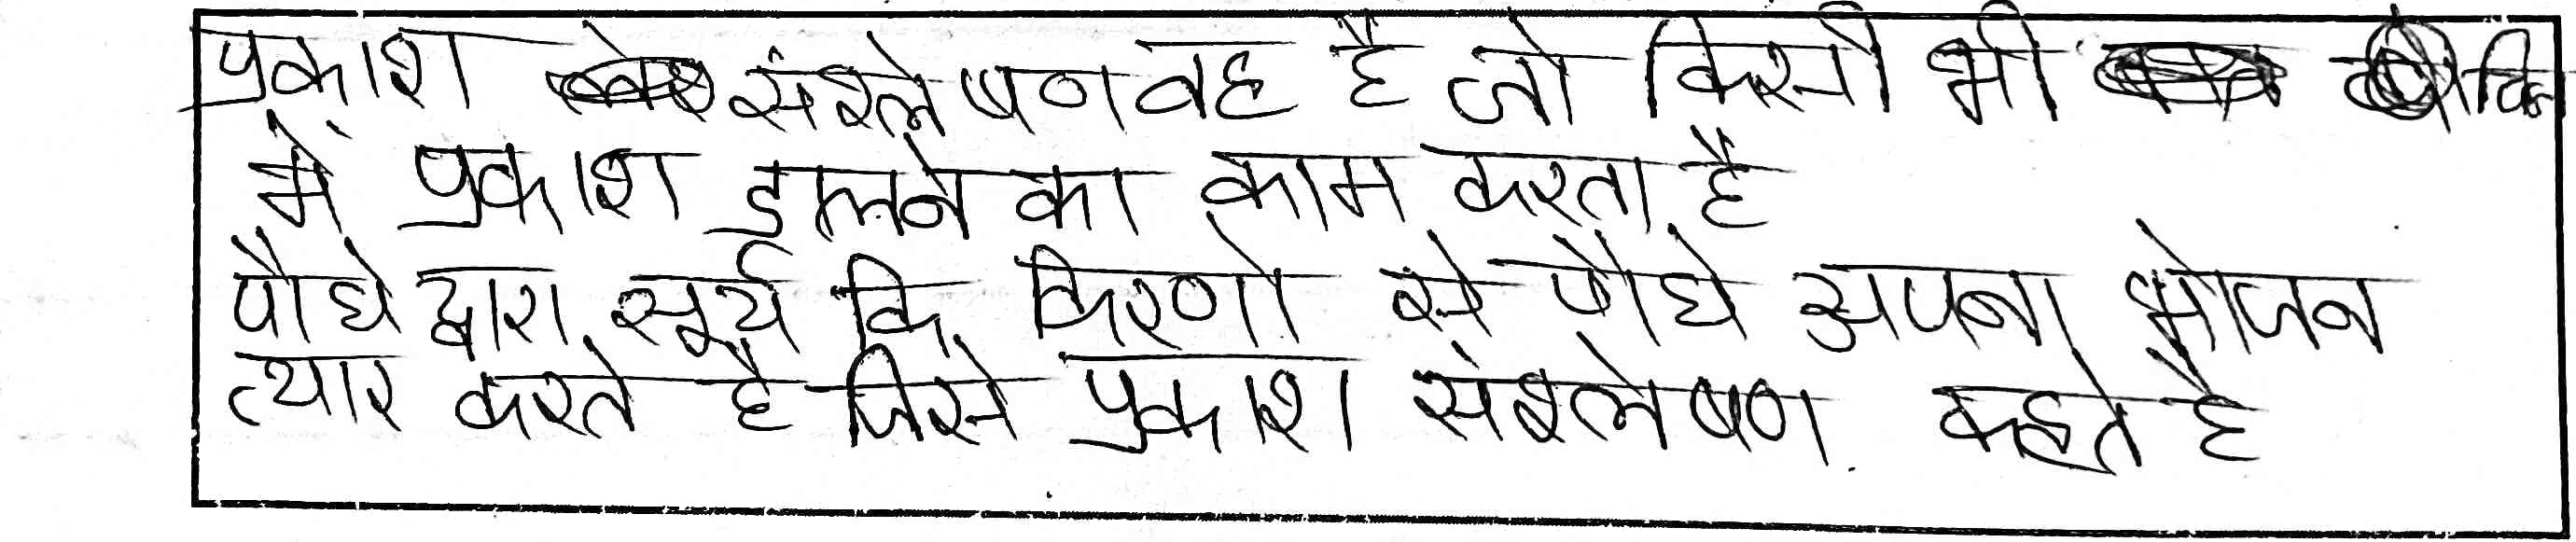 प्रकाश संश्लेषण वह है जो किसी भी
में प्रकाश डालने का काम करता है
पौधे द्वारा सूर्य कि किरणो से पौधे अपना भोजन
त्यार करते है जिसे प्रकाश संश्लेषण कहते है